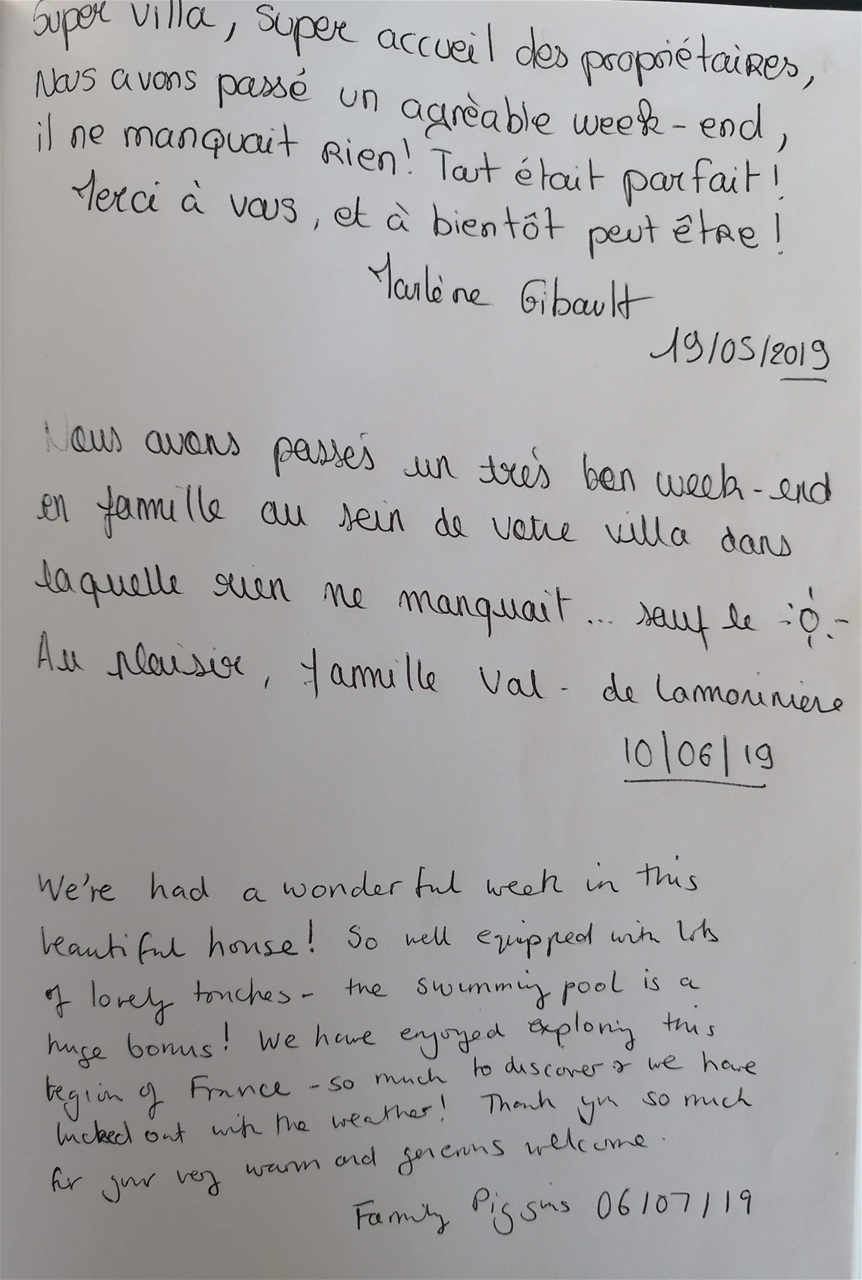 Super villa, super accueil des propriétaires,
Nous avons passé un agrèable week-end,
il ne manquait rien! Tout était parfait!
Merci à vous, et à bientôt peut être!
Marlène Gibault
19/05/2019
Nous avons passés un très bon week-end
en famille au sein de votre villa dans
laquelle rien ne manquait... sauf le
Au plaisir, famille Val - de Lamorinière
10/06/19
We're had a wonderful week in this
beautiful house! So well equipped with lots
of lovely touches - the swimming pool is a
huge bonus! We have enjoyed exploring this
region of France - so much to discover & we have
lucked out with the weather! Thank you so much
for your very warm and generous welcome.
Family 06/07/19